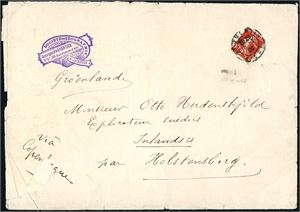 Gröenland.
Monsieur Otto Nordenskjöld
Explorateur suédois
Inlandsis
par Holstensborg.
Via
Copenhague